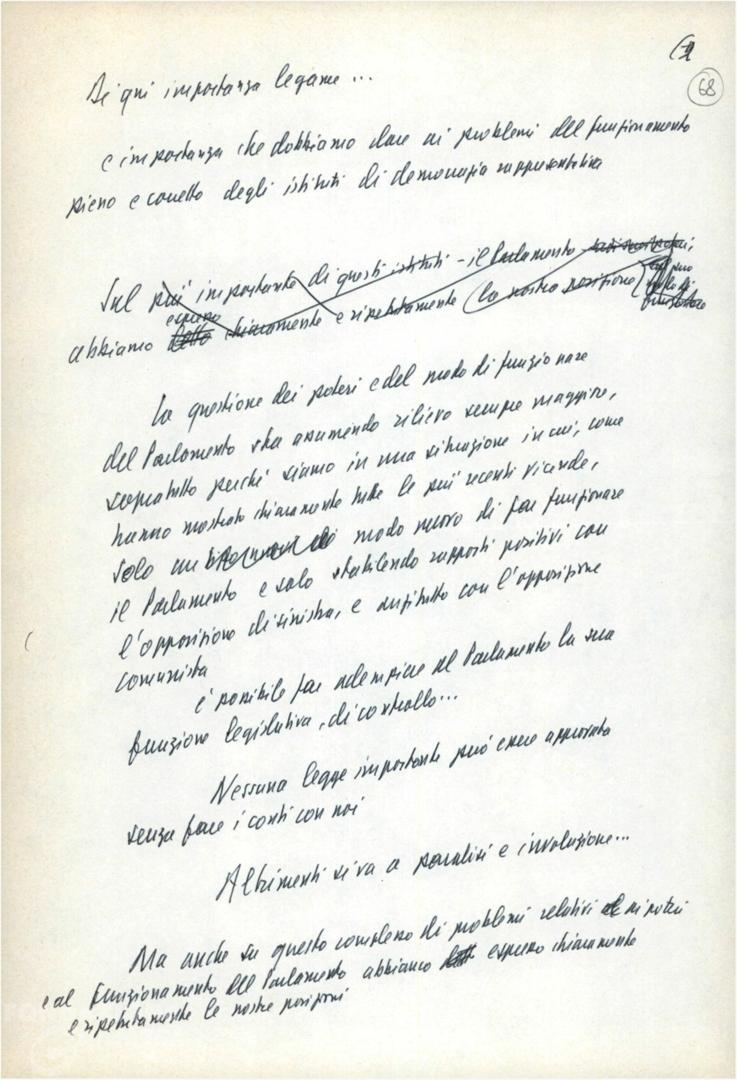 68
Di qui importanza legame...
e importanza che dobbiamo dare ai problemi del funzionamento
pieno e corretto degli istituti di democrazia rappresentativa
Sul più importante di questi istituti - il Parlamento
abbiamo espresso detto chiaramente e ripetutamente (la nostra posizione
sul suo
modo di
funzionare
La questione dei poteri e del modo di funzionare
del Parlamento sta assumendo rilievo sempre maggiore,
sopratutto perché siamo in una situazione in cui, come
hanno mostrato chiaramente tutte le più recenti vicende,
solo un modo nuovo di far funzionare
il Parlamento e solo stabilendo rapporti positivi con
l'opposizione di sinistra, e anzitutto con l'opposizione
comunista
è possibile far adempiere al Parlamento la sua
funzione legislativa, di controllo...
Nessuna legge importante può essere approvata
senza fare i conti con noi
Altrimenti si va a paralisi e involuzione...
Ma anche su questo complesso di problemi relativi ai poteri
e al funzionamento del Parlamento abbiamo detto espresso chiaramente
e ripetutamente le nostre posizioni